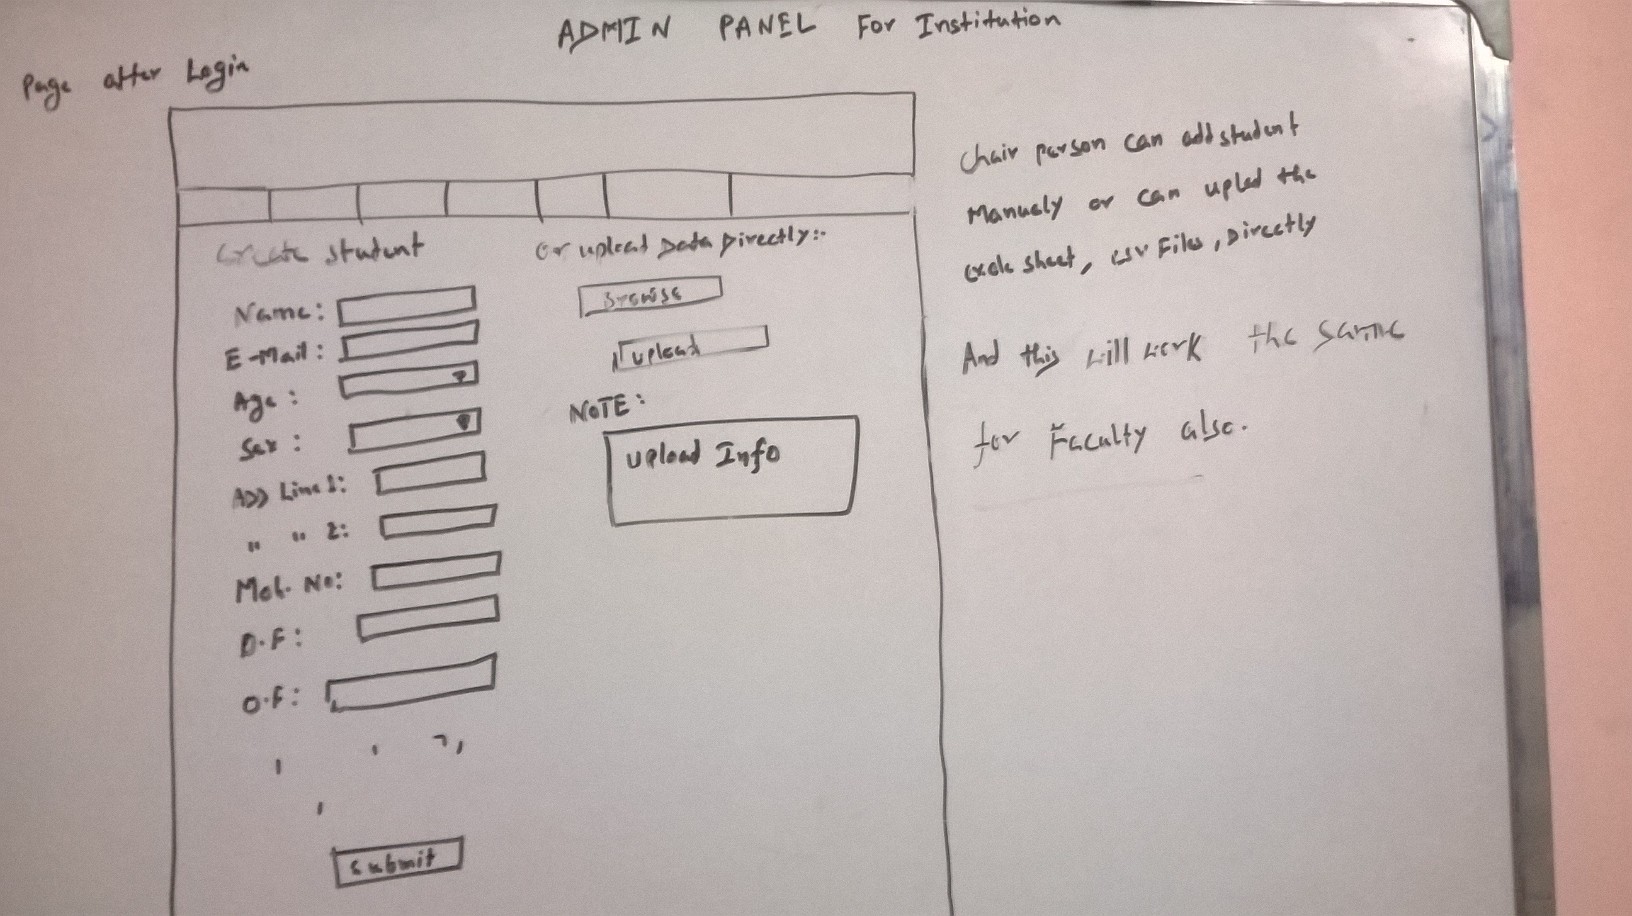 ADMIN PANEL For Institution
Page after Login
Create student
Name:
E-Mail:
Age:
Sex:
ADD Line 1:
" " 2:
Mob. No:
D.F:
O.F:
submit
Or upload Data Directly:-
Browse
upload
NOTE:
upload Info
Chair person can add student
Manualy or can upled the
excle sheet, csv Files, Directly
And this will work the same
for Faculty also.